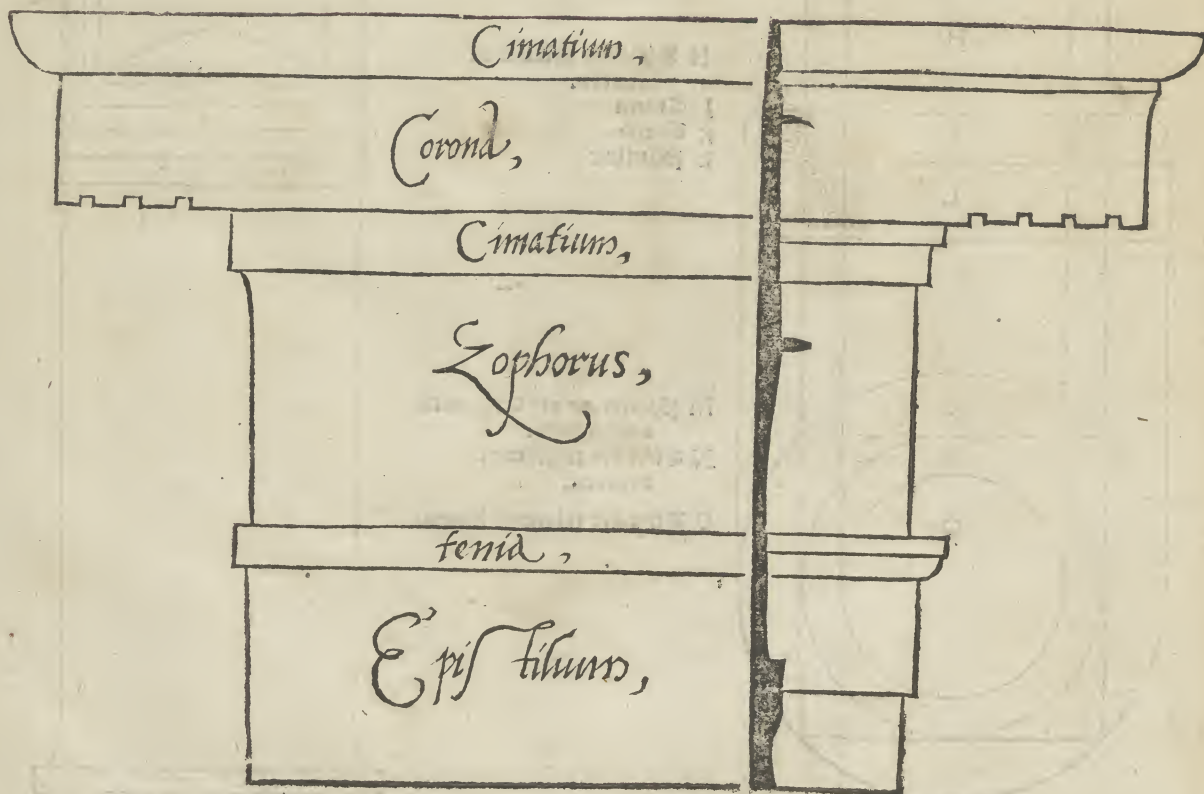 Cimatium,
Corona,
Cimatium,
Zophorus,
tenia,
Epistilium,